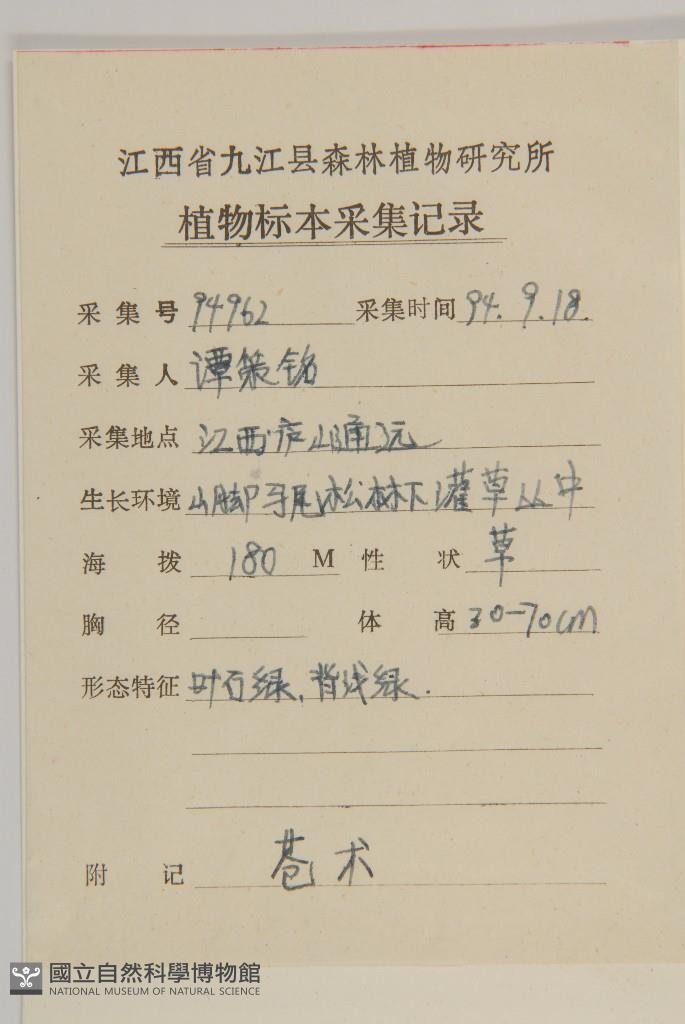 江西省九江县森林植物研究所
植物标本采集记录
采集号 94962 采集时间 94.9.18.
采集人 谭策铭
采集地点 江西庐山通远
生长环境 山脚马尾松林下灌草丛中
海拨 180 M 性状 草
胸径 体高 30-70cm
形态特征 叶石绿、背浅绿.
附记 苍术
國立自然科學博物館
NATIONAL MUSEUM OF NATURAL SCIENCE